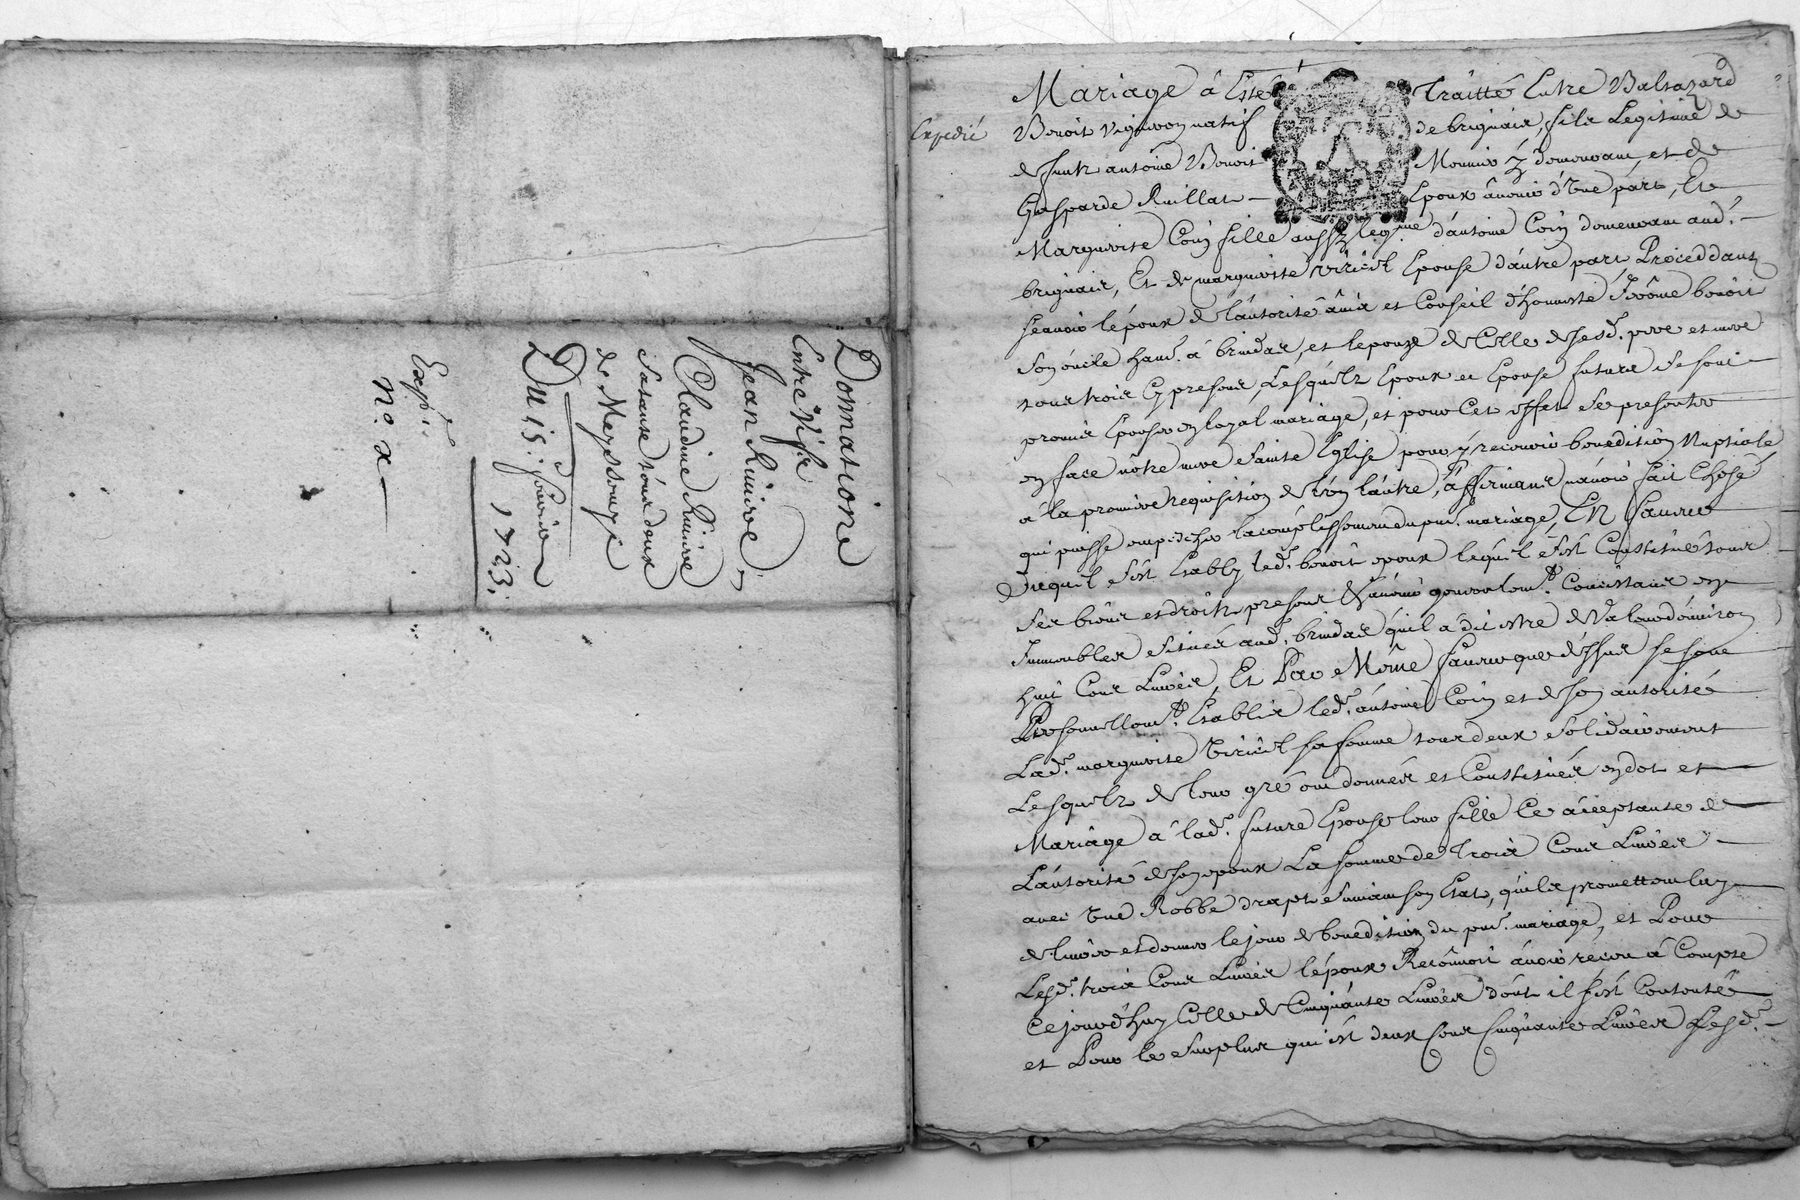 Donnation
Entre Vifs
Jean Riviere
Claudine Riviere
de Meyssouye
Du 15: fevrier
1723;
Exp.
n.º
Expedié
Mariage à Esté Traitté Entre Baltazard
Benoit vigneron natif de brignais, fils Legitime de
deffunt antoine Benoit Mounier y demeurant, et de
Gasparde Ruillat Epoux avenir d'Une part, Et
Marguerite Coin fille aussy leg.me d'antoine Coin demeurant aud.
brignais, Et de marguerite Epouse d'autre part Proceddants
scavoir l'époux de l'autorité avis et Conseil d'honneste Jerôme benoit
son oncle hant. à brindas, et lepouze de Celle de sesd. pere et mere
tous trois Cy presens, Lesquels Epoux et Epouse futurs se sont
promis Epouser en loyal mariage, et pour Cet effet se presenter
en face nôtre mere sainte Eglise pour y recevoir benediction Nuptiale
a la premiere requisition de l'un l'autre, affirmants n'avoir fait Chose
qui puisse empecher lacomplissement du pnt. mariage, En faveur
Duquel s'est Estably led. benoit epoux lequel s'est Constitué tous
ses biens et droits presents & avenir Consistants en
Immeubles situés aud. brindas qu'il a dit estre de Valeur d'environ
huit Cens Livres, Et Par Même faveur que dessus se sont
Personnellemt. Establis led. antoine Coin et de son autorité
Lad. marguerite sa femme tous deux solidairement
Lesquels de leur gré ont donnés et Constitués en dot et
Mariage à lad. future Epouse leur fille Ce acceptante de
L'autorité de son epoux La somme de Trois Cens Livres
avec Une Robbe drapt suivant son Estat, qu'ils promettent luy
delivrer et donner le jour de benediction du pnt. mariage, et Pour
Lesd. trois Cens Livres l'époux Reconnoit avoir receu à Compte
Cejourd'huy Celle de Cinquante Livres dont il s'est Contenté
et Pour le surplus qui est deux Cens Cinquante Livres Lesd.